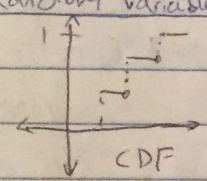 random variable
1
CDF